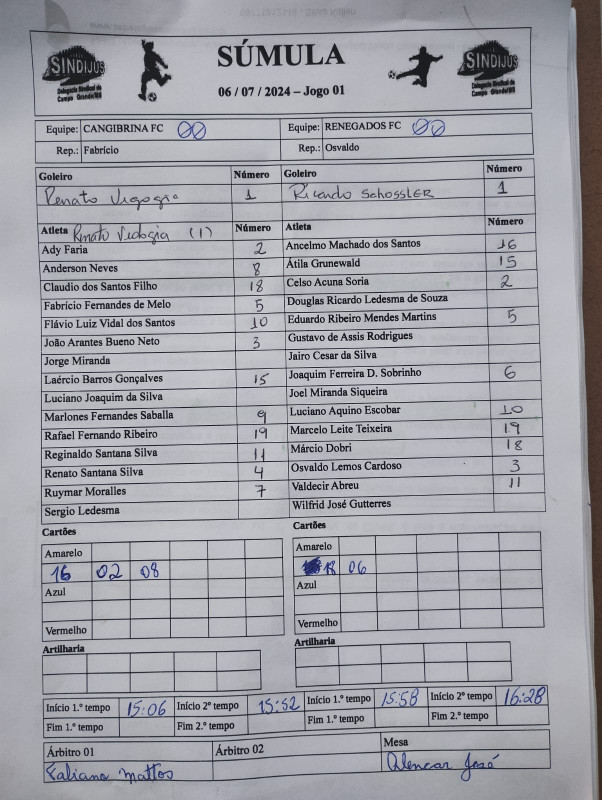 SINDIJUS SÚMULA SINDIJUS
Delegacia Sindical de Delegacia Sindical de
Campo Grande/MS 06 / 07 / 2024 – Jogo 01 Campo Grande/MS
Equipe: CANGIBRINA FC 00 Equipe: RENEGADOS FC 00
Rep.: Fabrício Rep.: Osvaldo
Goleiro Número Goleiro Número
Renato 1 Ricardo SchossLER 1
Atleta Renato (1) Número Atleta Número
Ady Faria 2 Ancelmo Machado dos Santos 16
Anderson Neves 8 Átila Grunewald 15
Claudio dos Santos Filho 18 Celso Acuna Soria 2
Fabrício Fernandes de Melo 5 Douglas Ricardo Ledesma de Souza
Flávio Luiz Vidal dos Santos 10 Eduardo Ribeiro Mendes Martins 5
João Arantes Bueno Neto 3 Gustavo de Assis Rodrigues
Jorge Miranda Jairo Cesar da Silva
Laércio Barros Gonçalves 15 Joaquim Ferreira D. Sobrinho 6
Luciano Joaquim da Silva Joel Miranda Siqueira
Marlones Fernandes Saballa 9 Luciano Aquino Escobar 10
Rafael Fernando Ribeiro 19 Marcelo Leite Teixeira 19
Reginaldo Santana Silva 11 Márcio Dobri 18
Renato Santana Silva 4 Osvaldo Lemos Cardoso 3
Ruymar Moralles 7 Valdecir Abreu 11
Sergio Ledesma Wilfrid José Gutterres
Cartões Cartões
Amarelo Amarelo
16 02 08 18 06
Azul Azul
Vermelho Vermelho
Artilharia Artilharia
Início 1.º tempo 15:06 Início 2º tempo 15:32 Início 1.º tempo 15:58 Início 2º tempo 16:28
Fim 1.º tempo Fim 2.º tempo Fim 1.º tempo Fim 2.º tempo
Árbitro 01 Árbitro 02 Mesa
Fabiano Mattos Alencar José